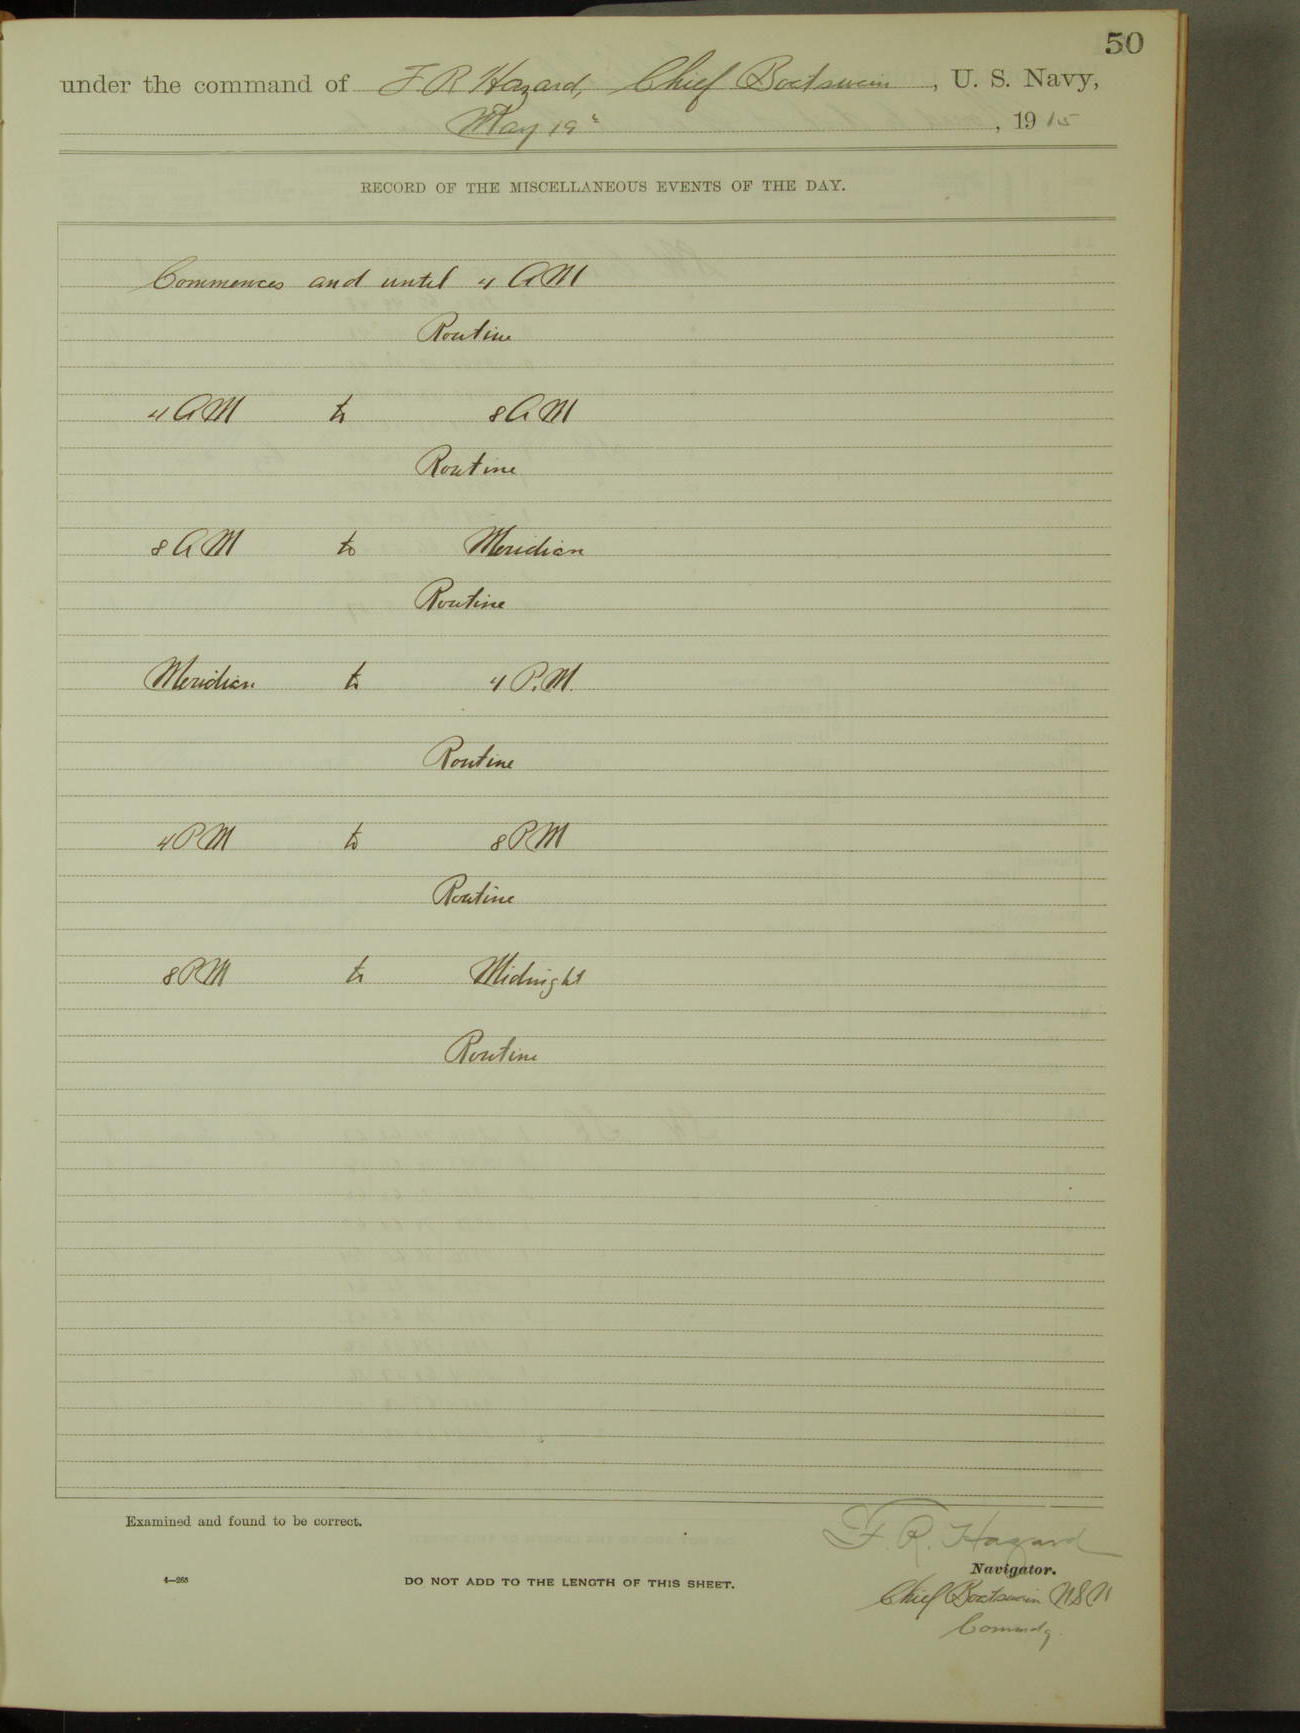 50
under the command of F R Hazard, Chief Boatswain, U. S. Navy,
May 19th, 1915
RECORD OF THE MISCELLANEOUS EVENTS OF THE DAY.
Commences and until 4 AM
Routine
4 AM to 8 AM
Routine
8 AM to Meridian
Routine
Meridian to 4 P.M.
Routine
4 PM to 8 PM
Routine
8 PM to Midnight
Routine
Examined and found to be correct.
F. R. Hazard
Navigator.
4—268
DO NOT ADD TO THE LENGTH OF THIS SHEET.
Chief Boatswain USN
Commdg.